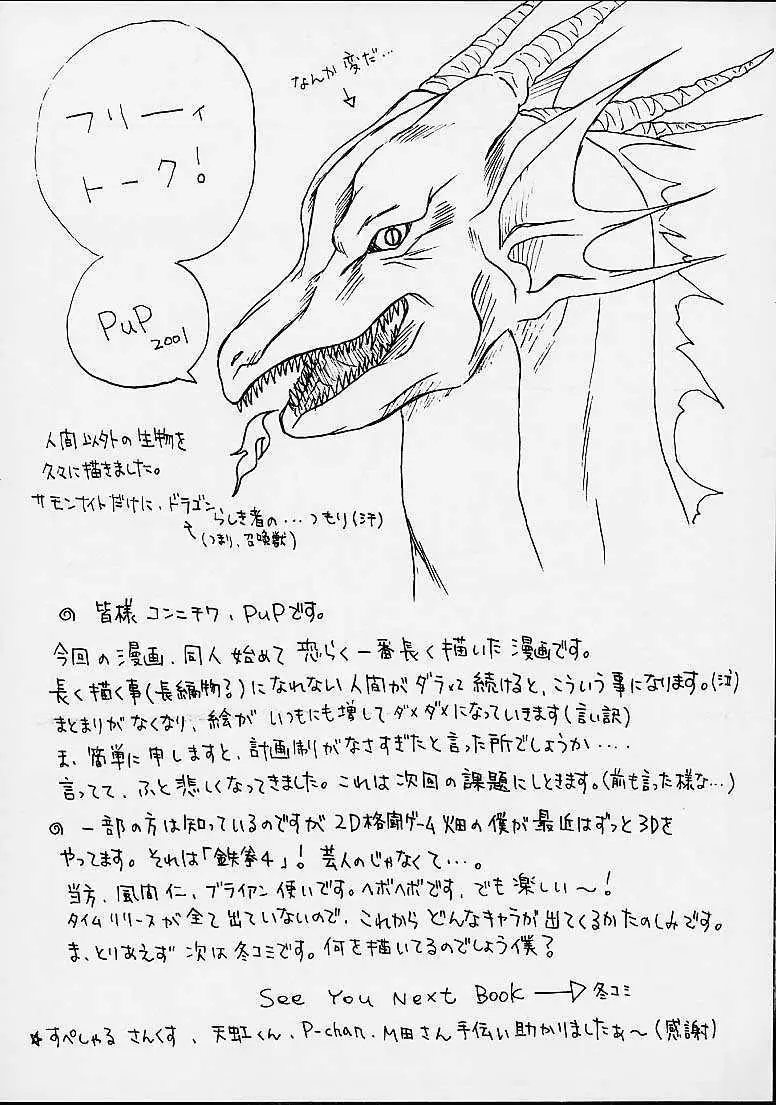 フリーィ
トーク!
PuP
2001
なんか変だ…
人間以外の生物を
久々に描きました。
サモンナイトだけに、ドラゴン
らしき者の…つもり(汗)
(つまり、召喚獣)
皆様コンニチワ、PuPです。
今回の漫画、同人始めて恐らく一番長く描いた漫画です。
長く描く事(長編物?)になれない人間がダラッと続けると、こういう事になります。(泣)
まとまりがなくなり、絵がいつもにも増してダメダメになっていきます(言い訳)
ま、簡単に申しますと、計画制がなさすぎたと言った所でしょうか‥‥
言ってて、ふと悲しくなってきました。これは次回の課題にしときます。(前も言った様な…)
一部の方は知っているのですが2D格闘ゲーム畑の僕が最近はずっと3Dを
やってます。それは「鉄拳4」!芸人のじゃなくて…。
当方、風間仁、ブライアン使いです。ヘボヘボです、でも楽しい〜!
タイムリリースが全て出ていないので、これからどんなキャラが出てくるかたのしみです。
ま、とりあえず次は冬コミです。何を描いてるのでしょう僕?
See You Next Book → 冬コミ
☆すぺしゃるさんくす、天虹くん、P-chan、M田さん手伝い助かりましたぁ〜(感謝)